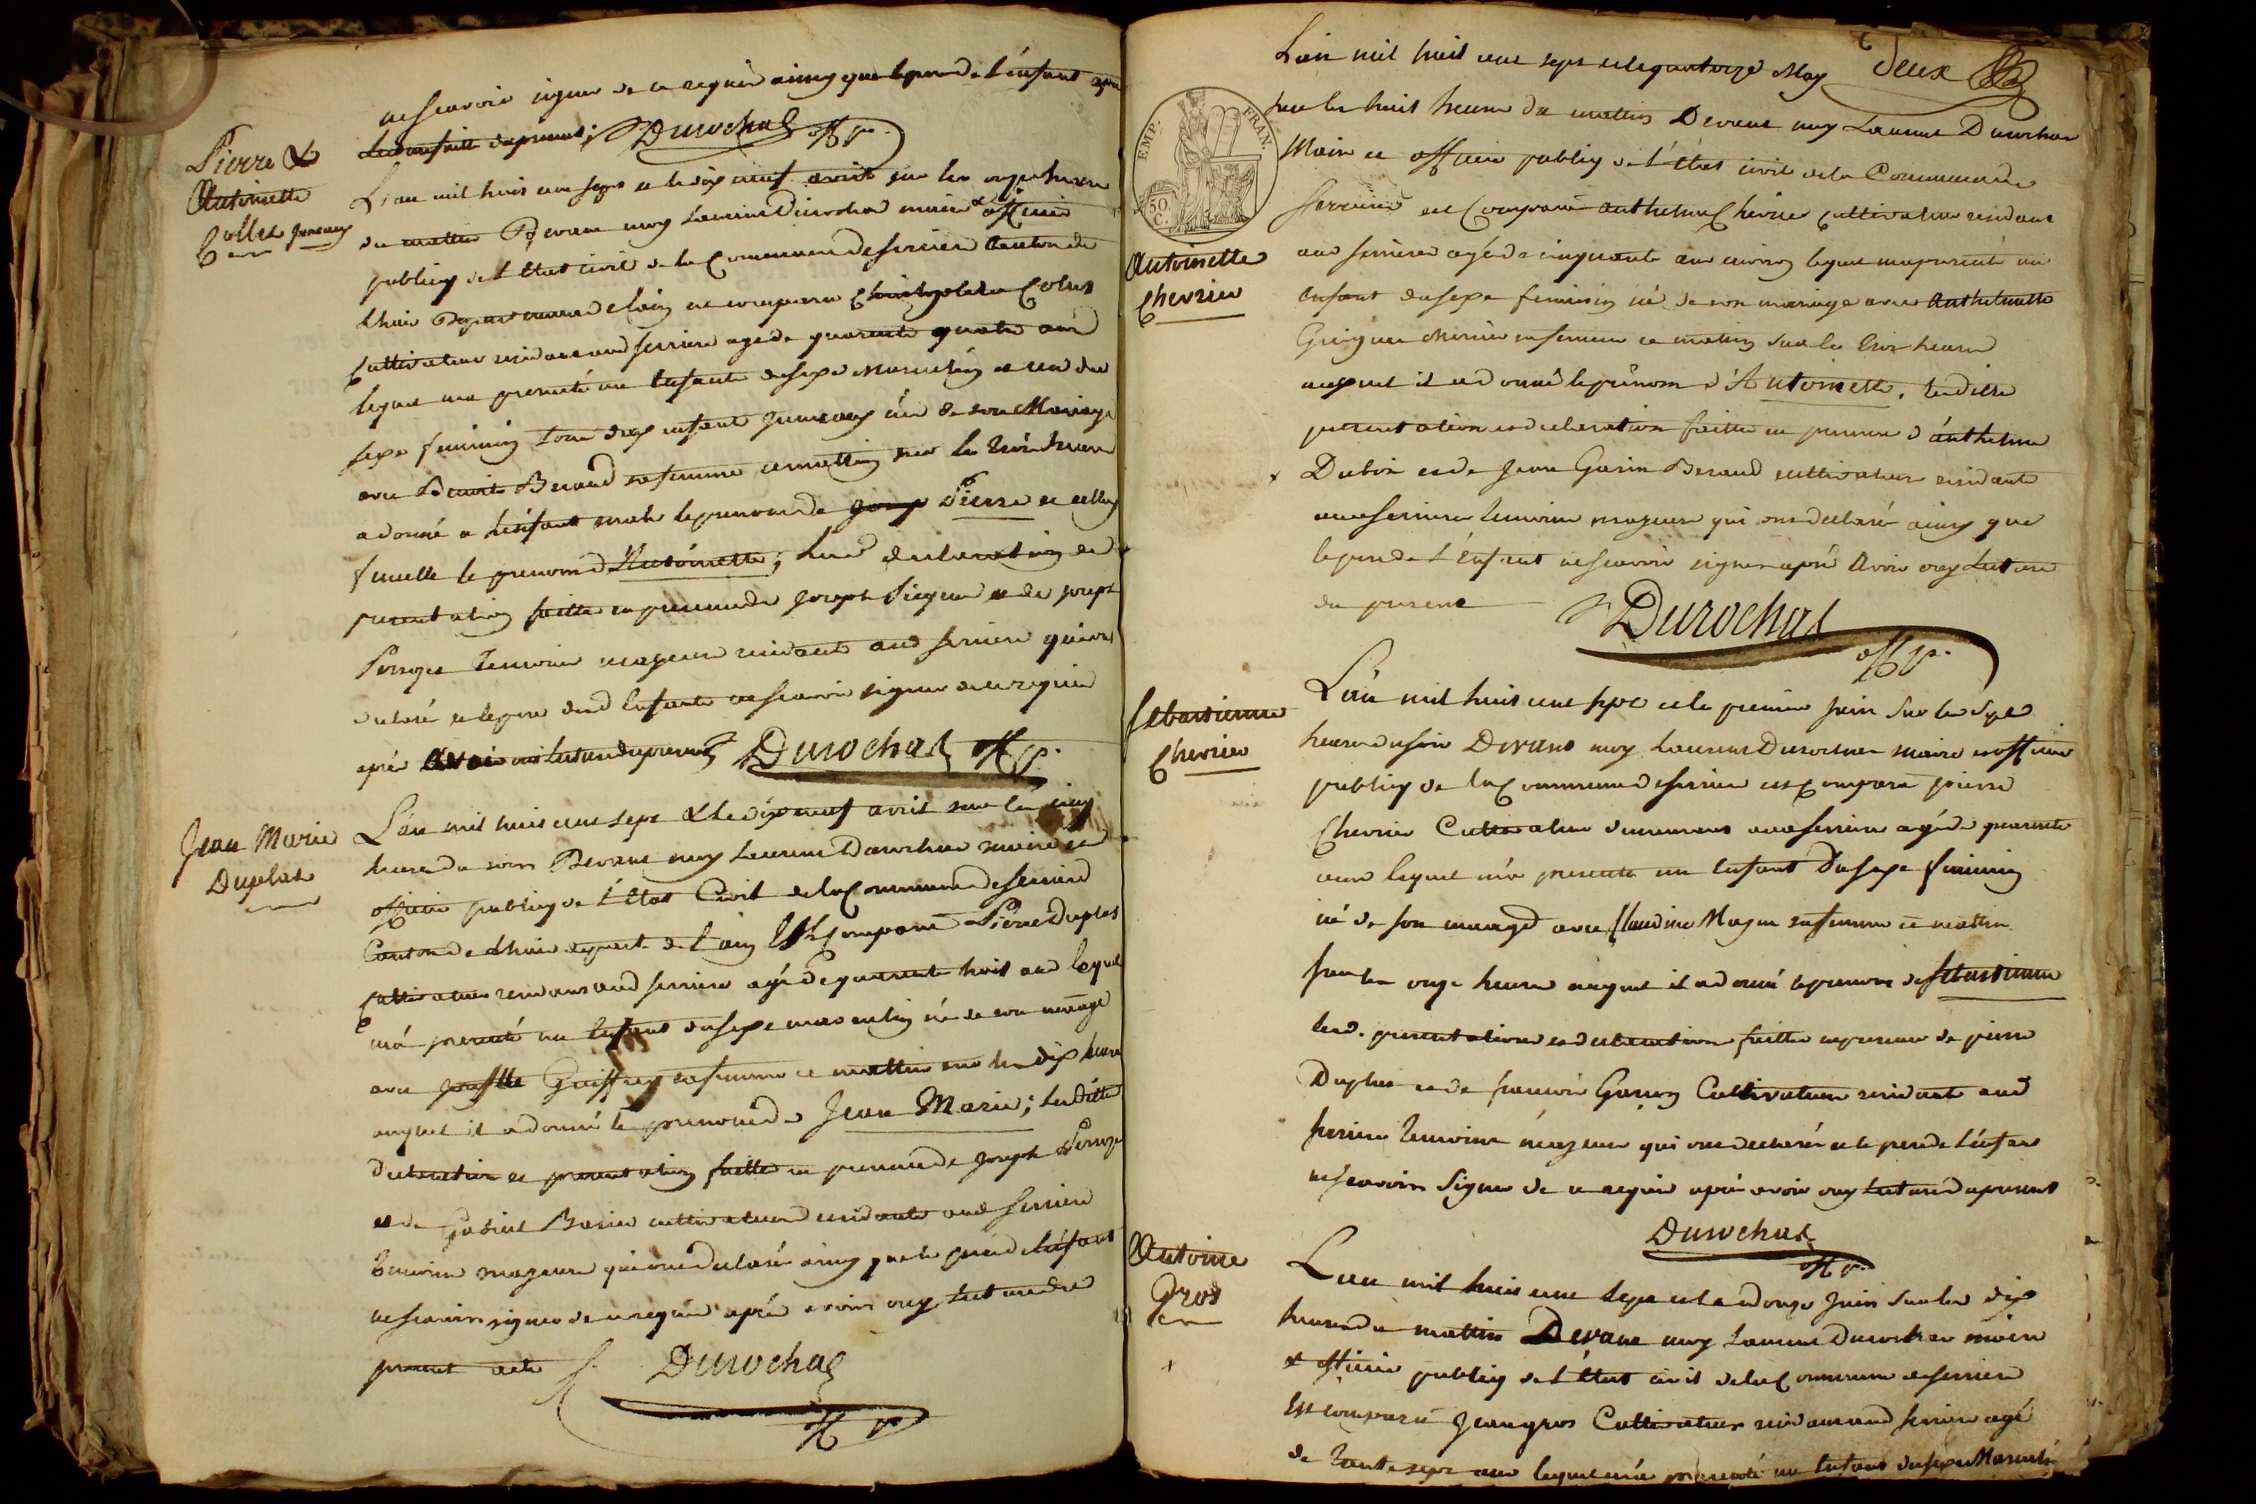 ne scavoir signer de ce requis ainsy que le pere de l'enfant apres
lecture faitte du present; Durochat off p.
Pierre &
Antoinette
Collet jumeaux
L'an mil huis cen sept et le dix neuf avril sur les onze heures
du mattin Devant moy Laurent Durochat maire & officier
publiq de l'Etat civil de la Commune de serriere Canton de
Lhuis Departement de l'ain est comparu Christophe Colet
Cultivateur residant aud serriere agé de quarente quatre ans
lequel ma presenté un Enfant du sexe Masculin et un du
sexe feminin tous deux enfant jumeaux né de son Mariage
avec Benoite Beraud sa femme ce mattin sur les trois heures
a donné a l'enfant male le prenom de Pierre et celluy
femelle le prenom d'Antoinette; Lesd declaration et
presentation faitte en presence de joseph Picquet et de joseph
Perrozet temoins majeurs residants aud serriere qui ont
declaré et le pere dud Enfants ne scavoir signer de ce requis
après avoir oui lecture du present Durochat off p.
Jean Marie
Duplat
L'an mil huis cen sept & le dix neuf avril sur les cinq
heures du soir Devant moy Laurent Durochat maire et
officier publiq de l'Etat Civil de la Commune de serriere
Canton de Lhuis depart. de l'ain Est Comparu Pierre Duplat
cultivateur residant aud serriere agé de quarente huit ans lequel
m'a presenté un Enfant du sexe masculin né de son mariage
avec josette Guiffrey sa femme ce mattin sur les dix heures
auquel il a donné le prenom de Jean Marie; Lesditte
declaration et presentation faitte en presence de joseph Perrozet
et de Gabriel Borier cultivateurs residants aud serriere
temoins majeurs qui ont declaré ainsy que le pere de l'enfant
ne scavoir signer de ce requis après avoir ouy lecture du
present acte Durochat
off p.
deux
EMP. FRAN.
50 C.
L'an mil huit cent sept et le quatorze May
sur les huit heures du mattin Devant moy Laurent Durochat
Maire et officier publiq de l'état civil de la Commune de
Serriere est Comparu anthelme Chevrier cultivateur residant
aud serriere agé de cinquante ans environ lequel ma presenté un
Antoinette
Chevrier
Enfant du sexe feminin né de son mariage avec Anthelmette
sa femme ce mattin sur les trois heures
auquel il a donné le prénom d'Antoinette. Lesdittes
presentation et declaration faitte en presence d'anthelme
Dubois et de Jean Garin Beraud cultivateurs residants
aud serriere temoins majeurs qui ont declaré ainsy que
le pere de l'Enfant ne scavoir signer après Avoir ouy Lecture
du present
Durochat
off p.
Sebastienne
Chevrier
L'an mil huit cent sept et le premier juin sur les sept
heures du soir Devant moy Laurent Durochat maire et officier
publiq de la Commune de serriere est Comparu pierre
Chevrier Cultivateur demeurant aud serriere agé de quarente
ans lequel m'a presenté un Enfant Du sexe feminin
né de son mariage avec Claudine Magnin sa femme ce mattin
sur les onze heures auquel il a donné le prenom de sebastienne
lesd. presentation et declaration faitte en presence de pierre
Duplat et de francois Garin Cultivateurs residant aud
serriere temoins majeurs qui ont declaré et le pere de l'enfant
ne scavoir Signer de ce requis après avoir ouy Lecture du present
Durochat
off p.
Antoine
Gros
L'an mil huis cent sept et le douze Juin sur les dix
heures du mattin Devant moy Laurent Durochat maire
et officier publiq de l'Etat civil de la Commune de serriere
Est comparu Jean gros Cultivateur residant aud serriere agé
de trente sept ans lequel m'a presenté un Enfant du sexe Masculin